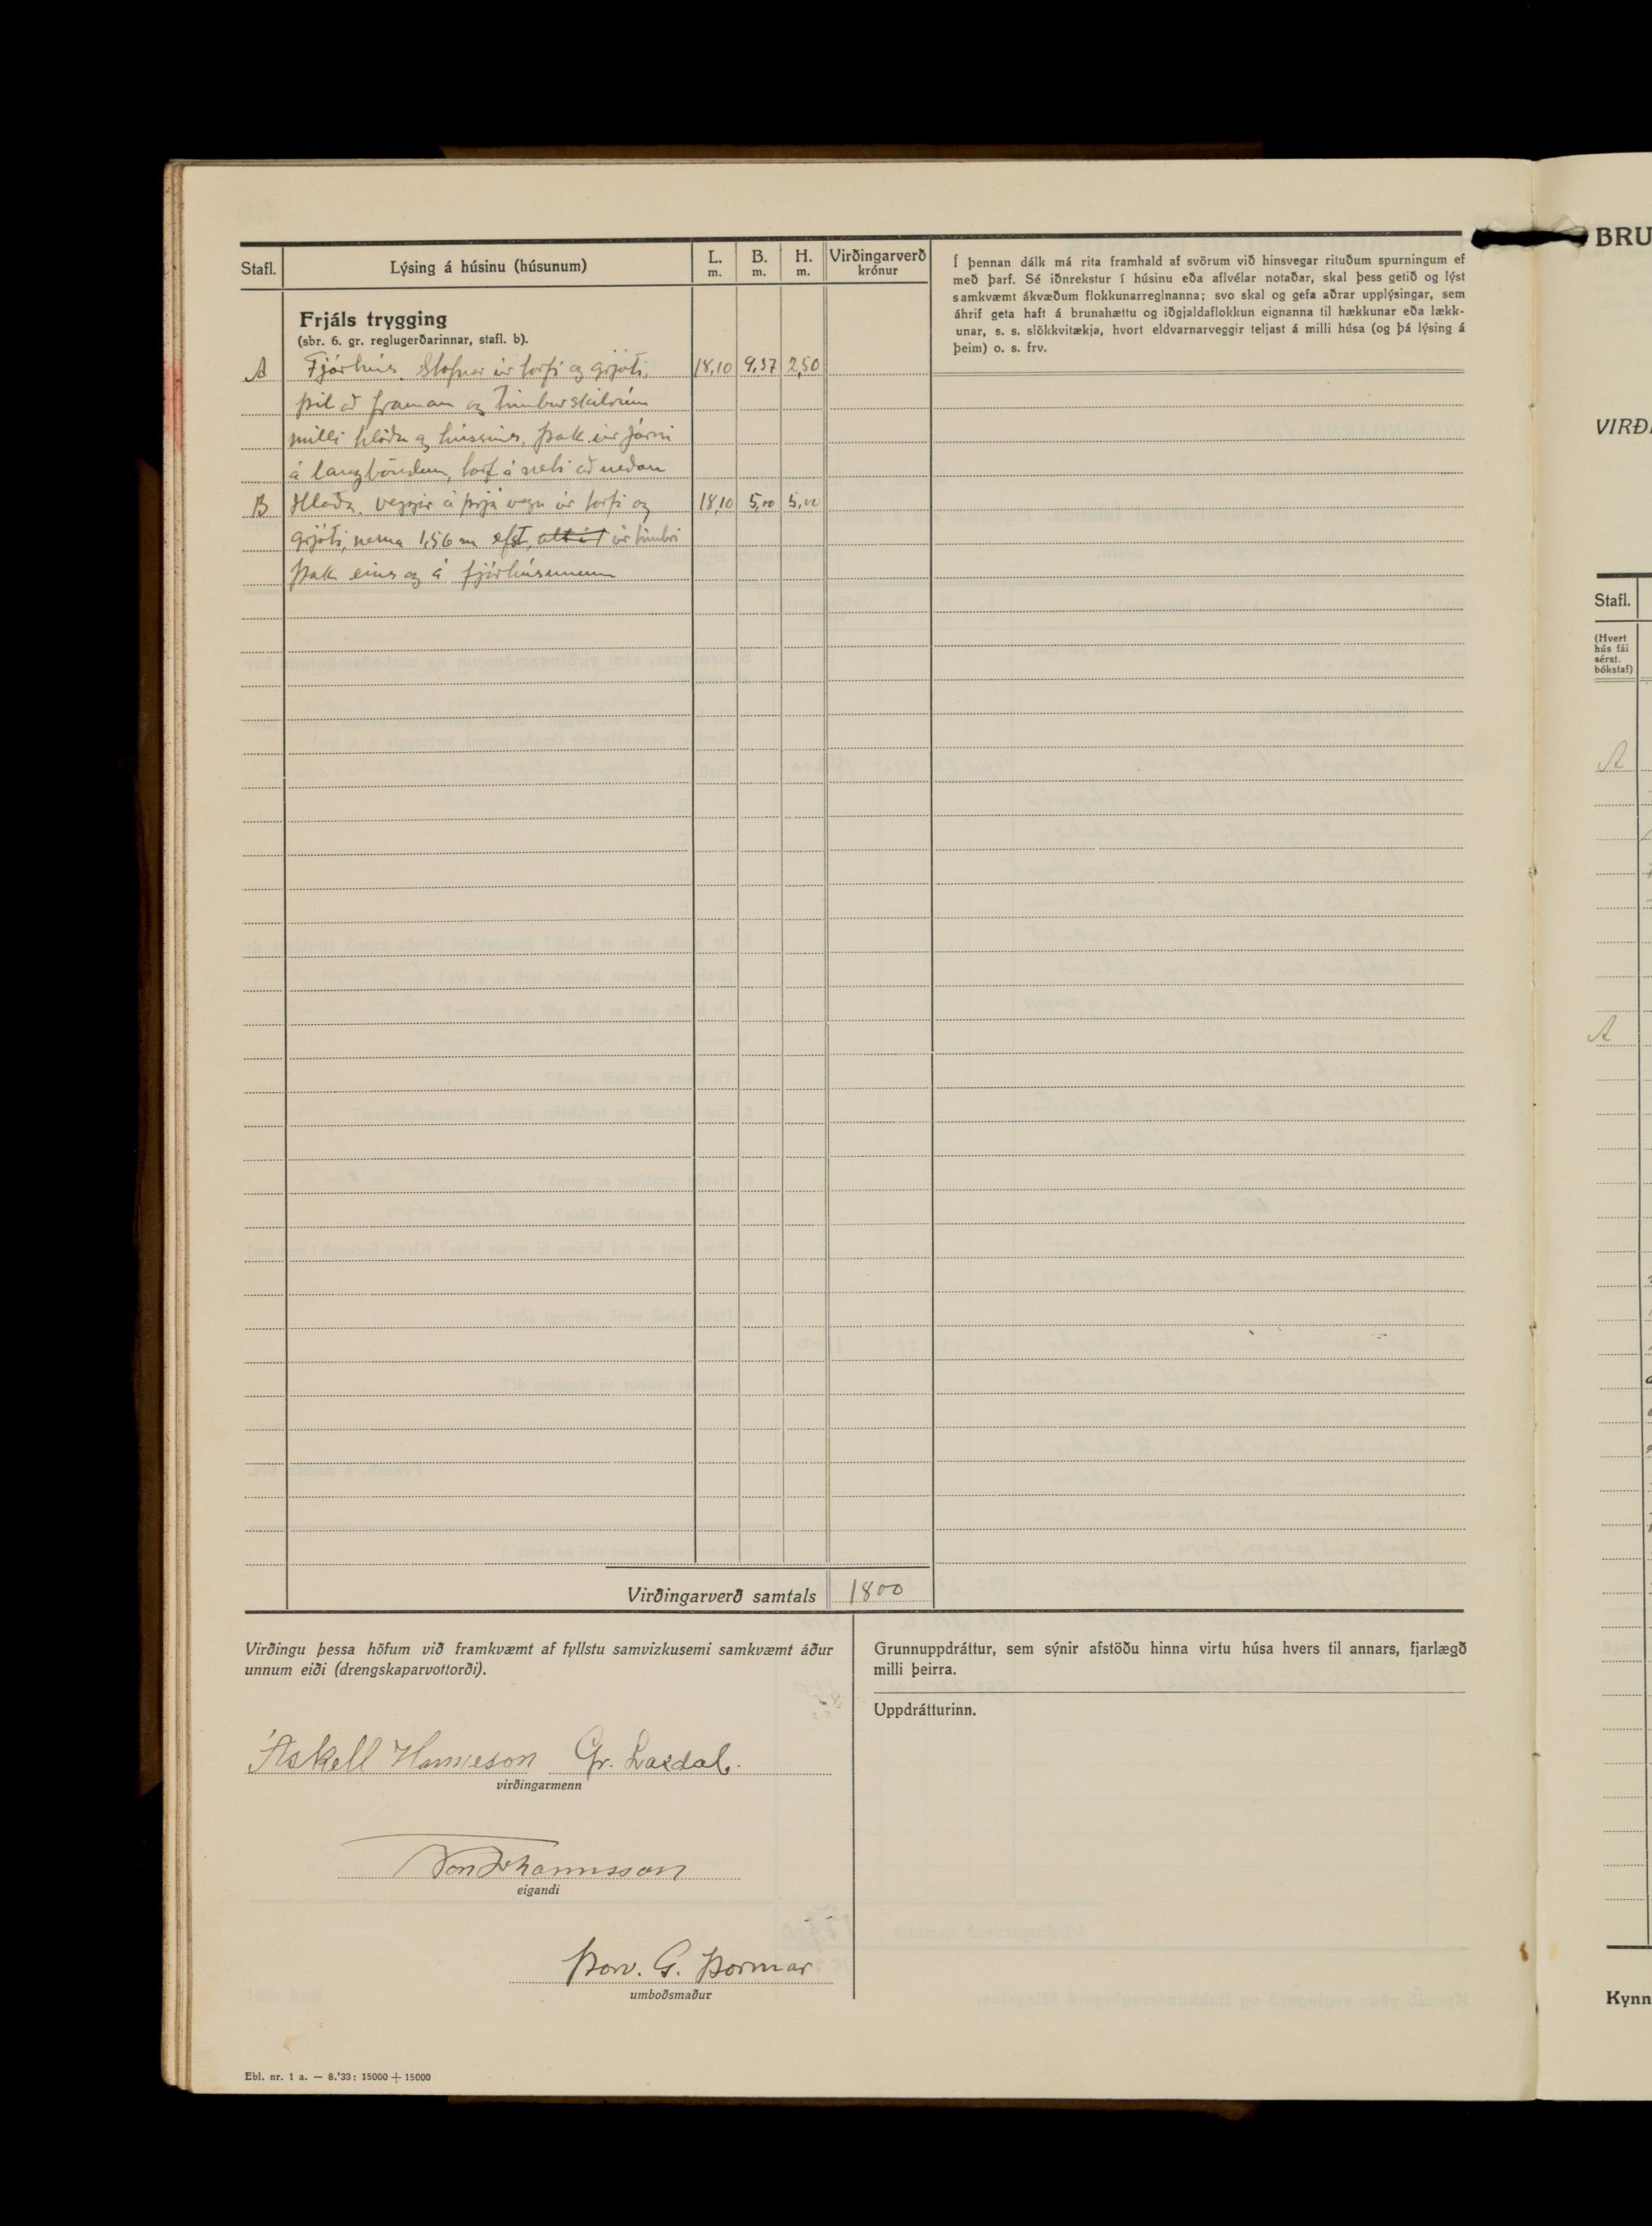 Stafl. Lýsing á húsinu (húsunum) L. m. B. m. H. m. Virðingarverð krónur
Frjáls trygging
(sbr. 6. gr. reglugerðarinnar, stafl. b).
A Fjárhús. Stafnar úr torfi og grjóti, 18,10 9,37 2,50
þil að framan og timburskilrúm
milli hlöðu og hússins, Þak úr járni
á langböndum, torf á neti að neðan
B Hlaða. veggir á þrjá vegu úr torfi og 18,10 5,00 5,00
grjóti, nema 1,56 m efst, úr timbri
Þak eins og á fjárhúsunum
Virðingarverð samtals 1800
Í þennan dálk má rita framhald af svörum við hinsvegar rituðum spurningum ef
með þarf. Sé iðnrekstur í húsinu eða aflvélar notaðar, skal þess getið og lýst
samkvæmt ákvæðum flokkunarreglnanna; svo skal og gefa aðrar upplýsingar, sem
áhrif geta haft á brunahættu og iðgjaldaflokkun eignanna til hækkunar eða lækk-
unar, s. s. slökkvitækja, hvort eldvarnarveggir teljast á milli húsa (og þá lýsing á
þeim) o. s. frv.
Virðingu þessa höfum við framkvæmt af fyllstu samvizkusemi samkvæmt áður
unnum eiði (drengskaparvottorði).
Áskell Hannesson Gr. Laxdal.
virðingarmenn
Jón Jóhannsson
eigandi
Þorv. G. Þormar
umboðsmaður
Grunnuppdráttur, sem sýnir afstöðu hinna virtu húsa hvers til annars, fjarlægð
milli þeirra.
Uppdrátturinn.
Ebl. nr. 1 a. — 8.'33: 15000 + 15000
BRU
VIRÐI
Stafl.
(Hvert
hús fái
sérst.
bókstaf)
A
A
Kynn